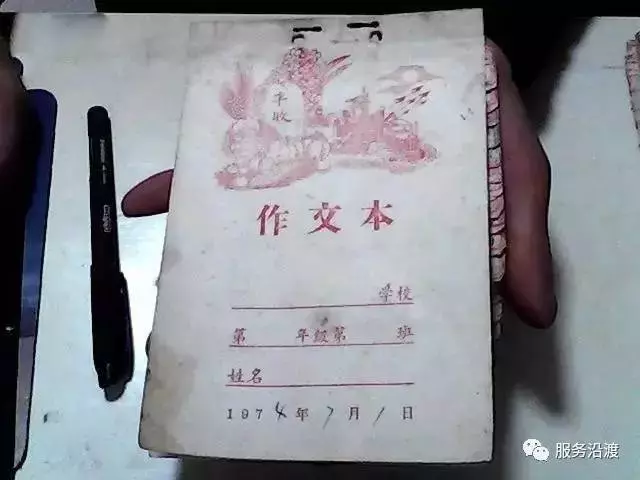 丰收
作文本
学校
第 年级第 班
姓名
1974年7月1日
服务沿渡